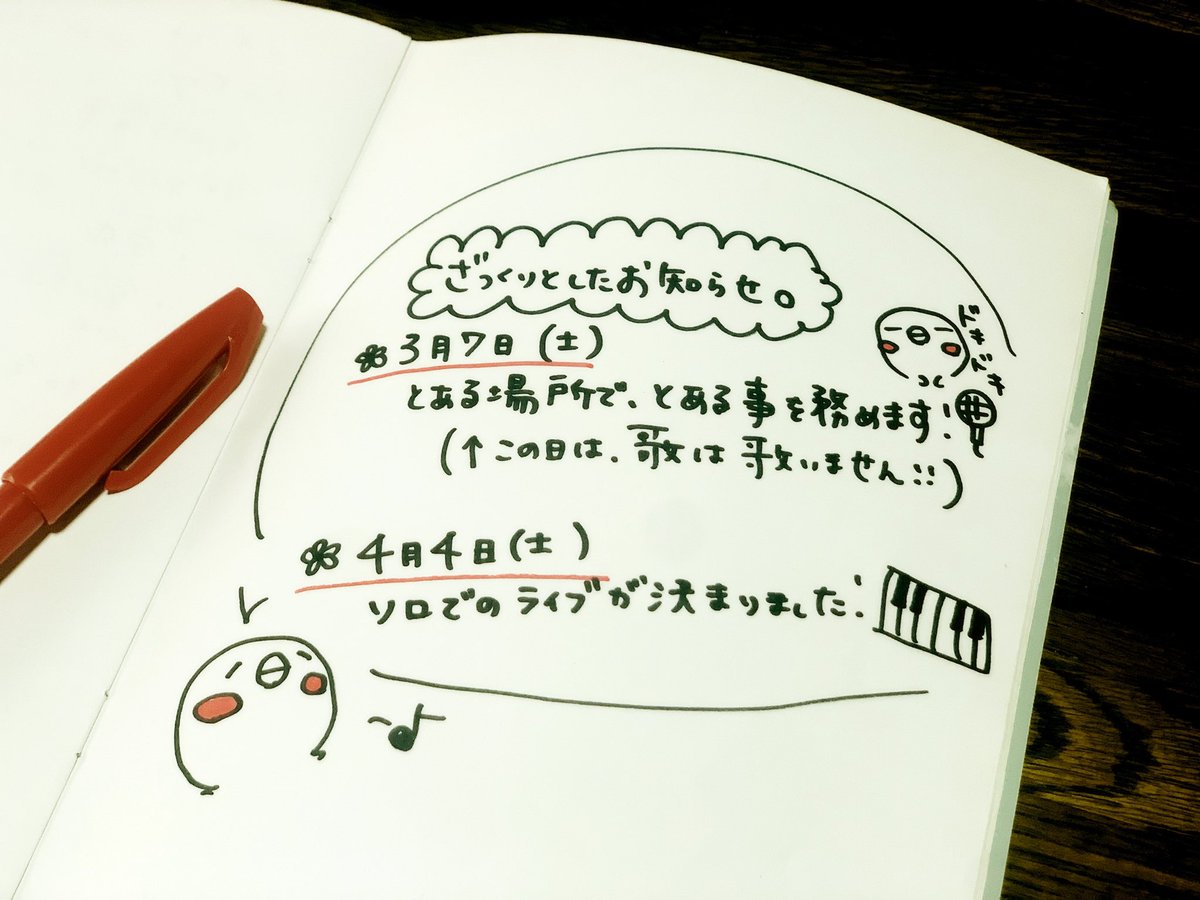 ざっくりとしたお知らせ。
3月7日(土)
ドキドキ
とある場所で、とある事を務めます!
(↑この日は、歌は歌いません!!)
4月4日(土)
ソロでのライブが決まりました!